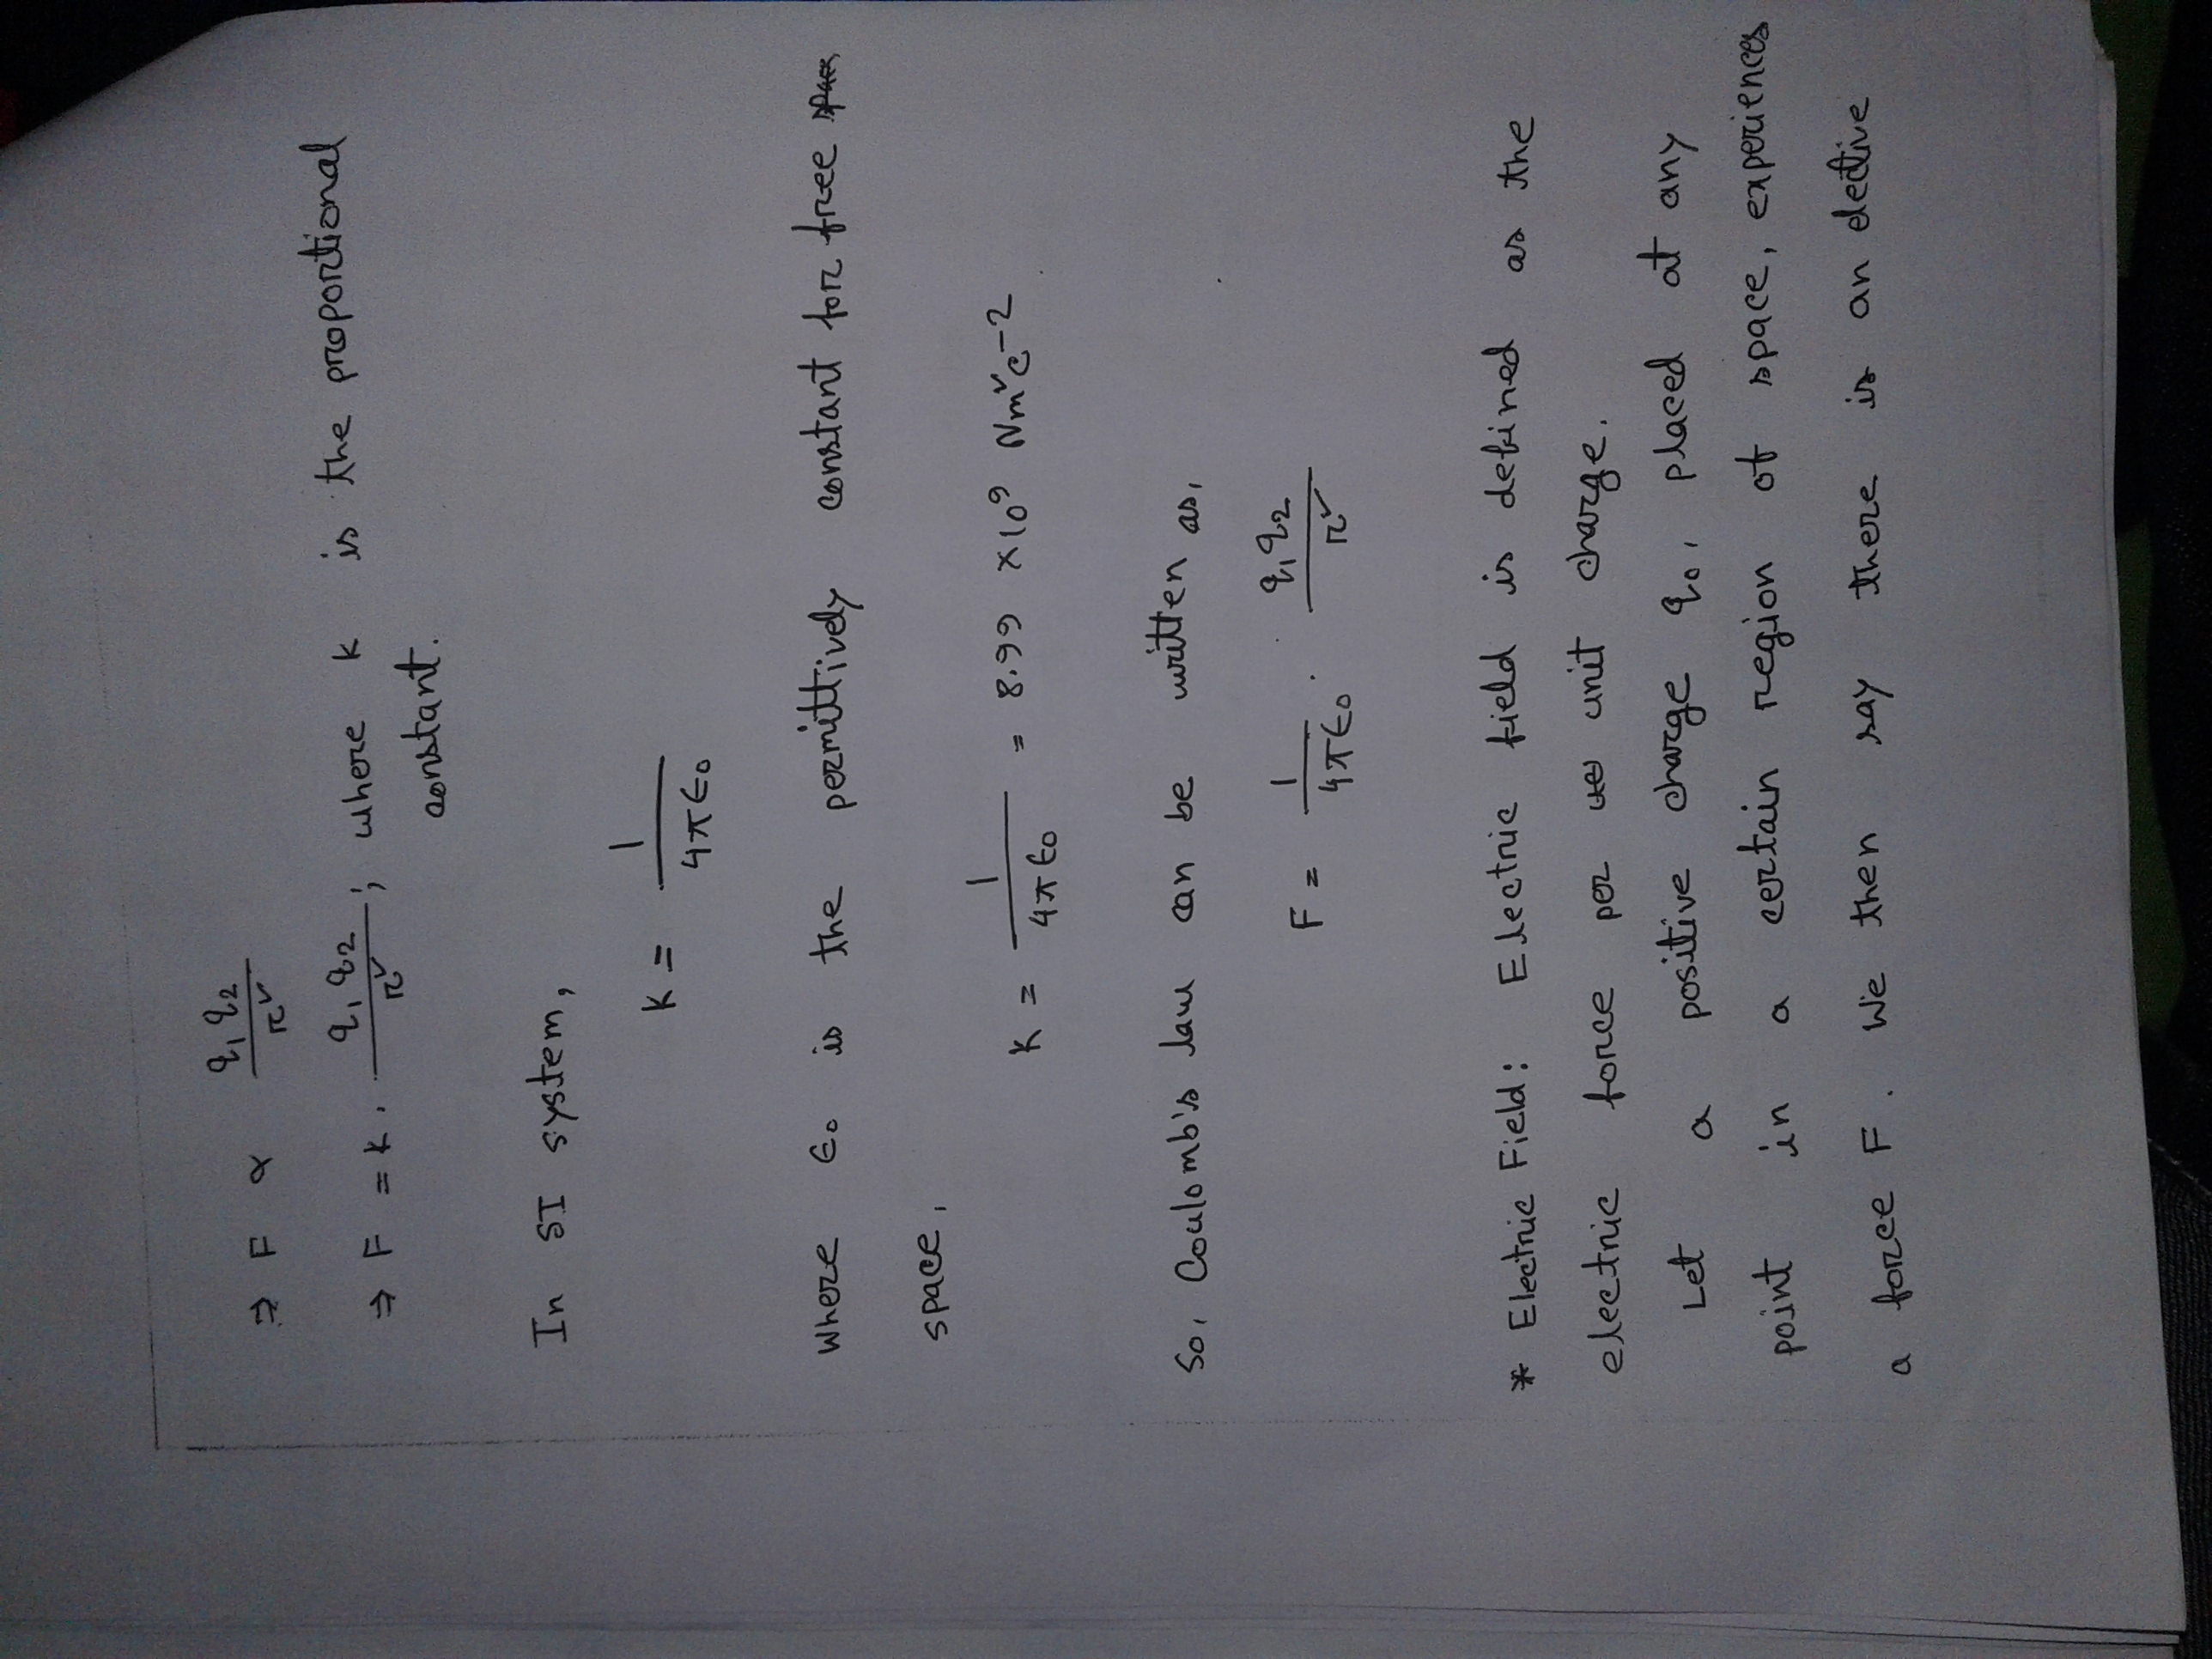 ⇒ F ∝ q₁ q₂ / r²
⇒ F = K . q₁ q₂ / r² ; where K is the proportional
constant.
In SI system,
K = 1 / 4π ϵ₀
where ϵ₀ is the permittively constant for free
space,
K = 1 / 4π ϵ₀ = 8.99 ×10⁹ Nm²c⁻²
So, Coulomb's law can be written as,
F = 1 / 4πϵ₀ . q₁ q₂ / r²
* Electric Field: Electric field is defined as the
electric force per unit charge.
Let a positive charge q₀, placed at any
point in a certain region of space, experiences
a force F. We then say there is an electric